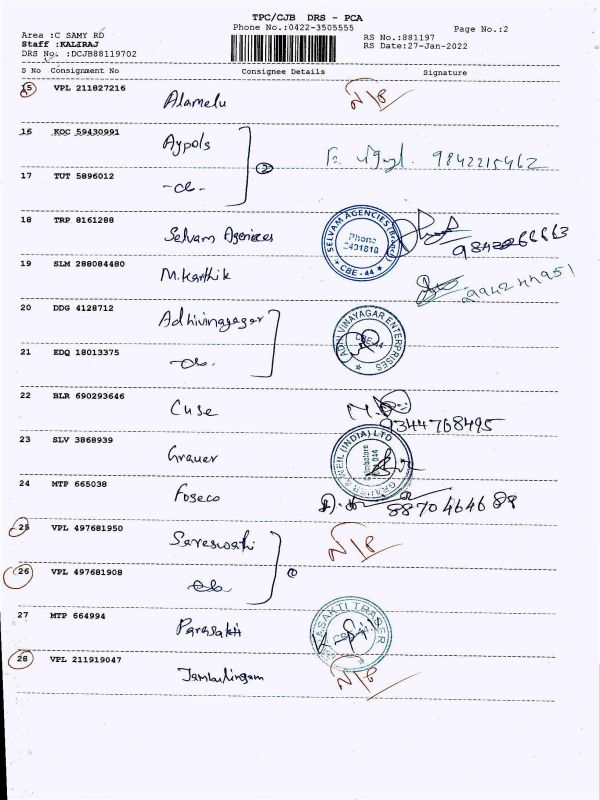 TPC/CJB DRS - PCA
Phone No.:0422-3505555
Page No.:2
Area :C SAMY RD
RS No.:881197
Staff :KALIRAJ
RS Date:27-Jan-2022
DRS No. :DCJB88119702
S No Consignment No Consignee Details Signature
15 VPL 211827216 Alamelu N/P
16 KOC 59430991 Aypols 2 9842215462
17 TUT 5896012 -do-
18 TRP 8161288 Selvam Agencies SELVAM AGENCIES Phone 2401818 CBE-44
19 SLM 288084480 M.Karthik
20 DDG 4128712 Adhivinayagar ADHI VINAYAGAR ENTERPRISES CBE-44
21 EDQ 18013375 -do-
22 BLR 690293646 Cuse 9344768495
23 SLV 3868939 Grauer & WEIL (INDIA) LTD
24 MTP 665038 Foseco 8870464689
25 VPL 497681950 Sareswathi N/P
26 VPL 497681908 -do- 1
27 MTP 664994 Parasakti
28 VPL 211919047 Jambulingam N/P